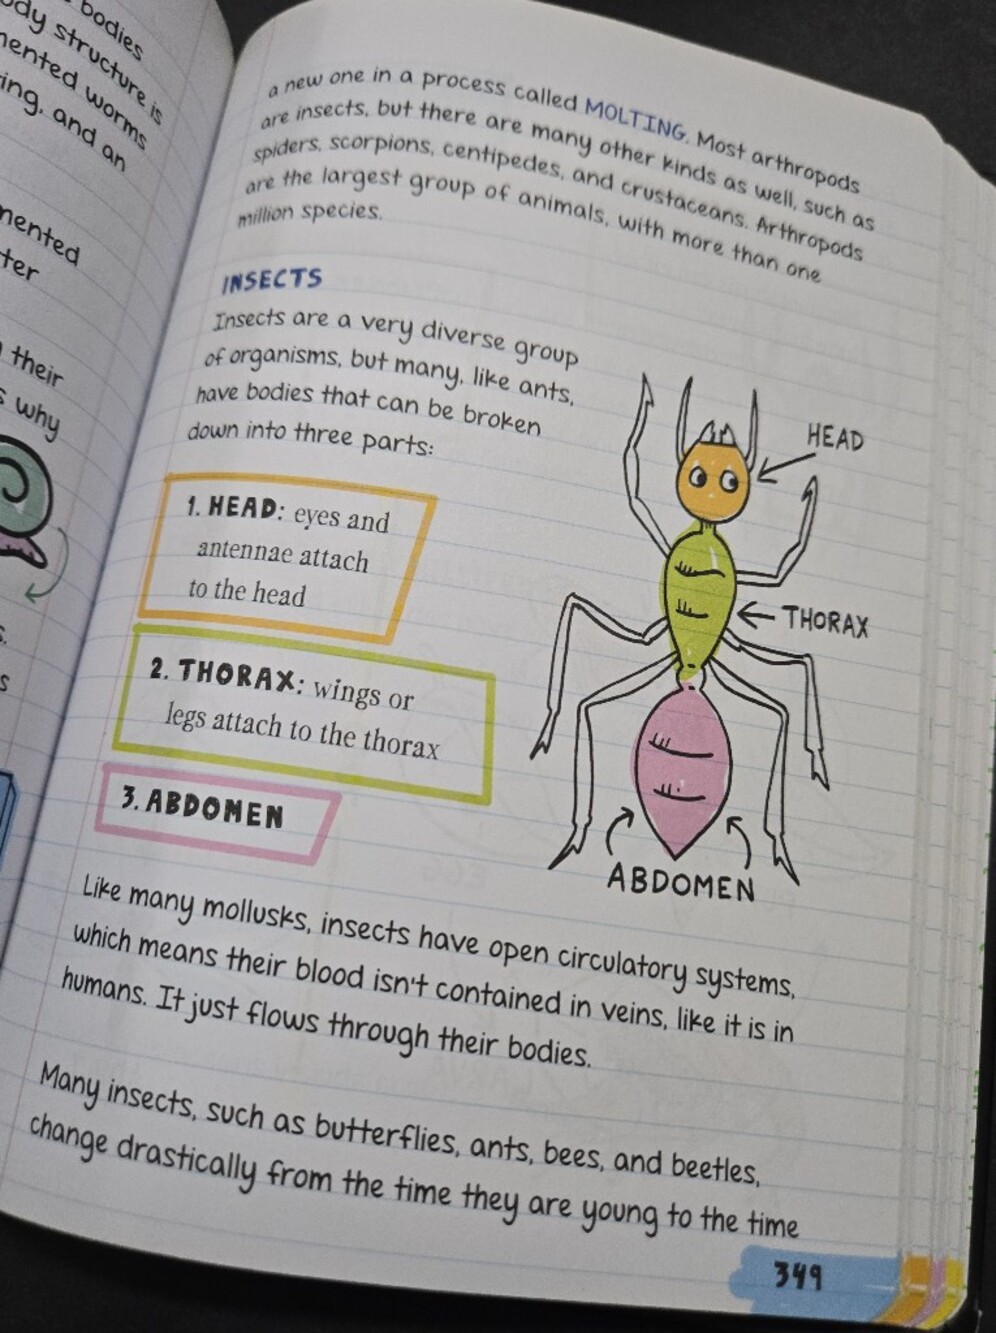 bodies
ody structure is
mented worms
ing, and an
mented
ter
their
s why
s.
s
a new one in a process called MOLTING. Most arthropods
are insects, but there are many other kinds as well, such as
spiders, scorpions, centipedes, and crustaceans. Arthropods
are the largest group of animals, with more than one
million species.
INSECTS
Insects are a very diverse group
of organisms, but many, like ants,
have bodies that can be broken
down into three parts:
1. HEAD: eyes and
antennae attach
to the head
2. THORAX: wings or
legs attach to the thorax
3. ABDOMEN
HEAD
THORAX
ABDOMEN
Like many mollusks, insects have open circulatory systems,
which means their blood isn't contained in veins, like it is in
humans. It just flows through their bodies.
Many insects, such as butterflies, ants, bees, and beetles,
change drastically from the time they are young to the time
349